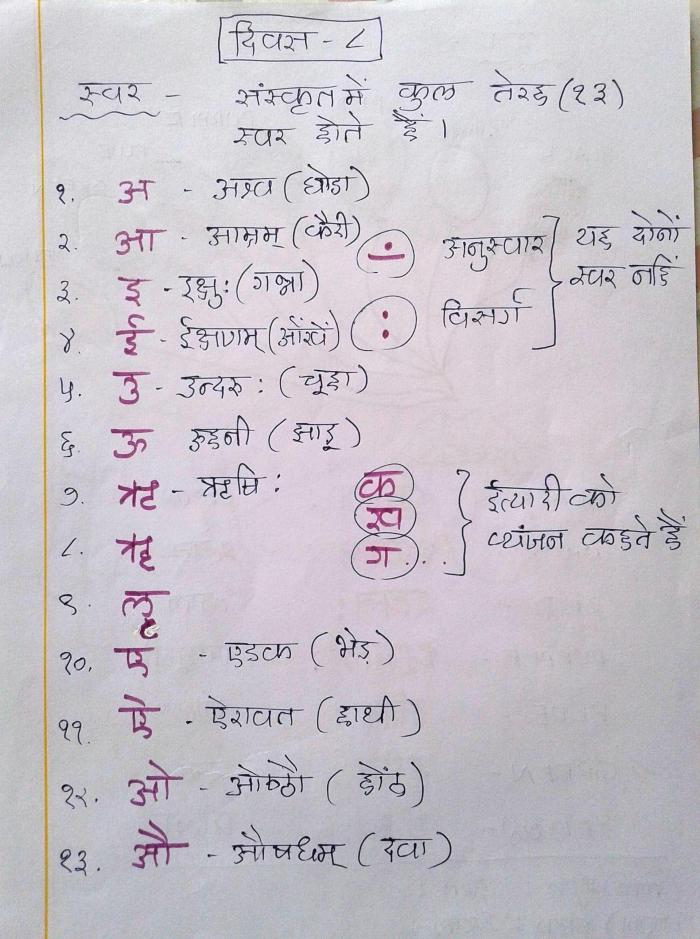 दिवस - ८
स्वर - संस्कृत में कुल तेरह (१३)
स्वर होते हैं।
१. अ - अश्व (घोडा)
२. आ - आम्रम् (कैरी)
३. इ - इक्षु: (गन्ना)
४. ई - ईक्षणम् (आँखें)
५. उ - उन्दरु: (चूहा)
६. ऊ ऊहनी (झाडू)
७. ऋ - ऋषि:
८. ॠ
९. लृ
१०. ए - एडक (भेड़)
११. ऐ - ऐरावत (हाथी)
१२. ओ - ओष्ठौ (होंठ)
१३. औ - औषधम् (दवा)
ं अनुस्वार
: विसर्ग
यह दोनों
स्वर नहिं
क
ख
ग...
ईत्यादी को
व्यंजन कहते हैं